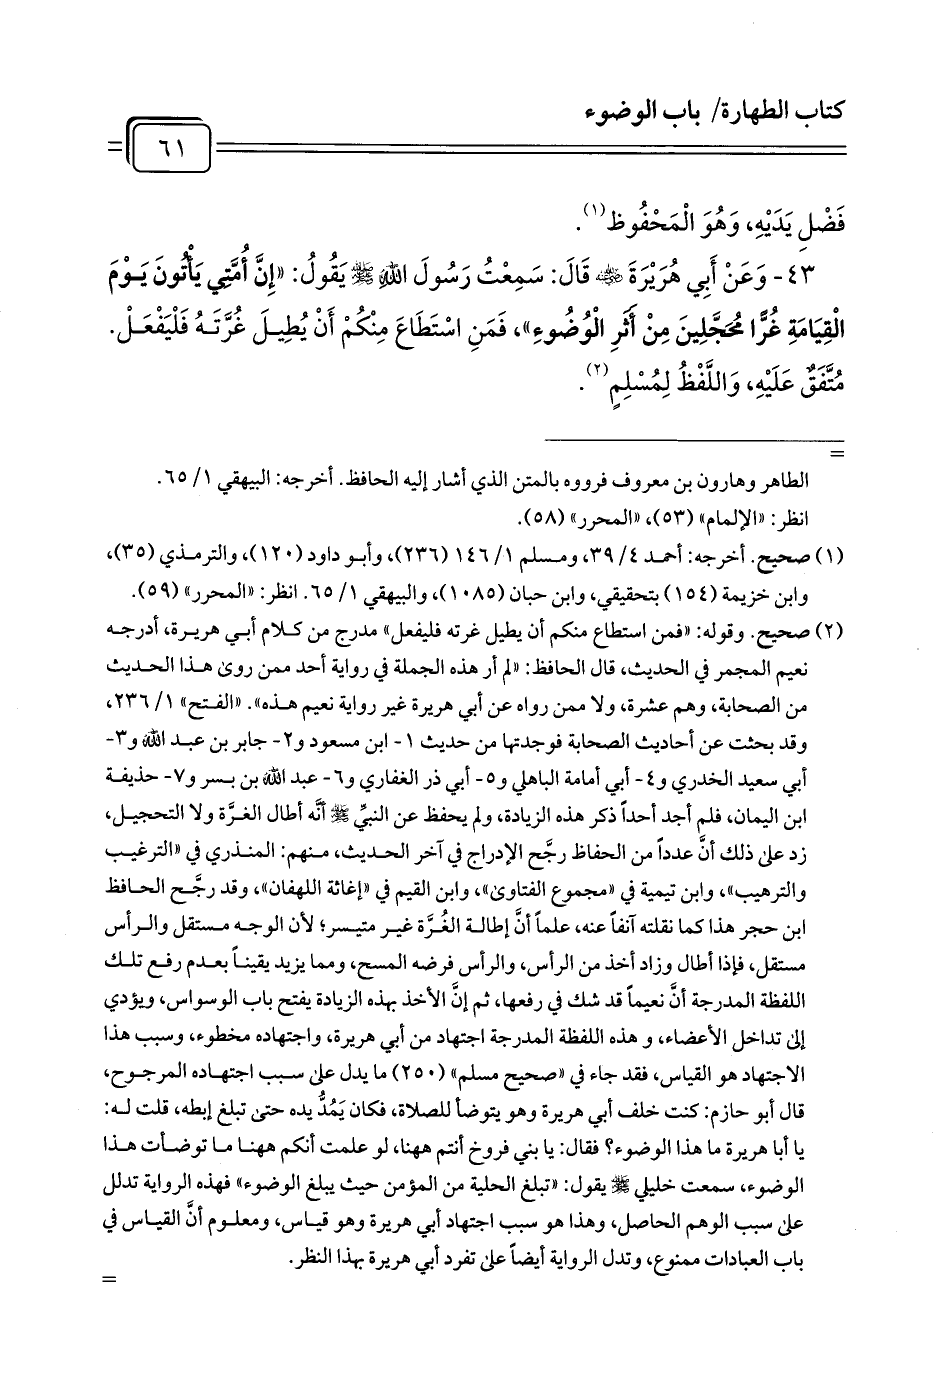 كتاب الطهارة/ باب الوضوء
٦١
فَضْلِ يَدَيْهِ، وَهُوَ الْمَحْفُوظ(١).
٤٣- وَعَنْ أَبِي هُرَيْرَةَ ﷺ قَالَ: سَمِعْتُ رَسُولَ اللهِ ﷺ يَقُولُ: «إِنَّ أُمَّتِي يَأْتُونَ يَوْمَ
الْقِيَامَةِ غُرًّا مُحَجَّلِينَ مِنْ أَثَرِ الْوُضُوءِ»، فَمَنِ اسْتَطَاعَ مِنْكُمْ أَنْ يُطِيلَ غُرَّتَهُ فَلْيَفْعَلْ.
مُتَّفَقٌ عَلَيْهِ، وَاللَّفْظُ لِمُسْلِمٍ(٢).
=
الطاهر وهارون بن معروف فرووه بالمتن الذي أشار إليه الحافظ. أخرجه: البيهقي ١/ ٦٥.
انظر: «الإلمام» (٥٣)، «المحرر» (٥٨).
(١) صحيح. أخرجه: أحمد ٤/ ٣٩، ومسلم ١/ ١٤٦ (٢٣٦)، وأبو داود (١٢٠)، والترمذي (٣٥)،
وابن خزيمة (١٥٤) بتحقيقي، وابن حبان (١٠٨٥)، والبيهقي ١/ ٦٥. انظر: «المحرر» (٥٩).
(٢) صحيح. وقوله: «فمن استطاع منكم أن يطيل غرته فليفعل» مدرج من كلام أبي هريرة، أدرجه
نعيم المجمر في الحديث، قال الحافظ: «لم أر هذه الجملة في رواية أحد ممن روىٰ هذا الحديث
من الصحابة، وهم عشرة، ولا ممن رواه عن أبي هريرة غير رواية نعيم هذه». «الفتح» ١/ ٢٣٦،
وقد بحثت عن أحاديث الصحابة فوجدتها من حديث ١- ابن مسعود و٢- جابر بن عبد الله و٣-
أبي سعيد الخدري و٤- أبي أمامة الباهلي و٥- أبي ذر الغفاري و٦- عبد الله بن بسر و٧- حذيفة
ابن اليمان، فلم أجد أحداً ذكر هذه الزيادة، ولم يحفظ عن النبيِّ ﷺ أنَّه أطال الغرَّة ولا التحجيل،
زد على ذلك أنَّ عدداً من الحفاظ رجَّح الإدراج في آخر الحديث، منهم: المنذري في «الترغيب
والترهيب»، وابن تيمية في «مجموع الفتاوىٰ»، وابن القيم في «إغاثة اللهفان»، وقد رجَّح الحافظ
ابن حجر هذا كما نقلته آنفاً عنه، علماً أنَّ إطالة الغُرَّة غير متيسر؛ لأن الوجه مستقل والرأس
مستقل، فإذا أطال وزاد أخذ من الرأس، والرأس فرضه المسح، ومما يزيد يقيناً بعدم رفع تلك
اللفظة المدرجة أنَّ نعيماً قد شك في رفعها، ثم إنَّ الأخذ بهذه الزيادة يفتح باب الوسواس، ويؤدي
إلى تداخل الأعضاء، و هذه اللفظة المدرجة اجتهاد من أبي هريرة، واجتهاده مخطوء، وسبب هذا
الاجتهاد هو القياس، فقد جاء في «صحيح مسلم» (٢٥٠) ما يدل على سبب اجتهاده المرجوح،
قال أبو حازم: كنت خلف أبي هريرة وهو يتوضأ للصلاة، فكان يَمُدُّ يده حتى تبلغ إبطه، قلت له:
يا أبا هريرة ما هذا الوضوء؟ فقال: يا بني فروخ أنتم ههنا، لو علمت أنكم ههنا ما توضأت هذا
الوضوء، سمعت خليلي ﷺ يقول: «تبلغ الحلية من المؤمن حيث يبلغ الوضوء» فهذه الرواية تدلل
على سبب الوهم الحاصل، وهذا هو سبب اجتهاد أبي هريرة وهو قياس، ومعلوم أنَّ القياس في
باب العبادات ممنوع، وتدل الرواية أيضاً على تفرد أبي هريرة بهذا النظر.
=